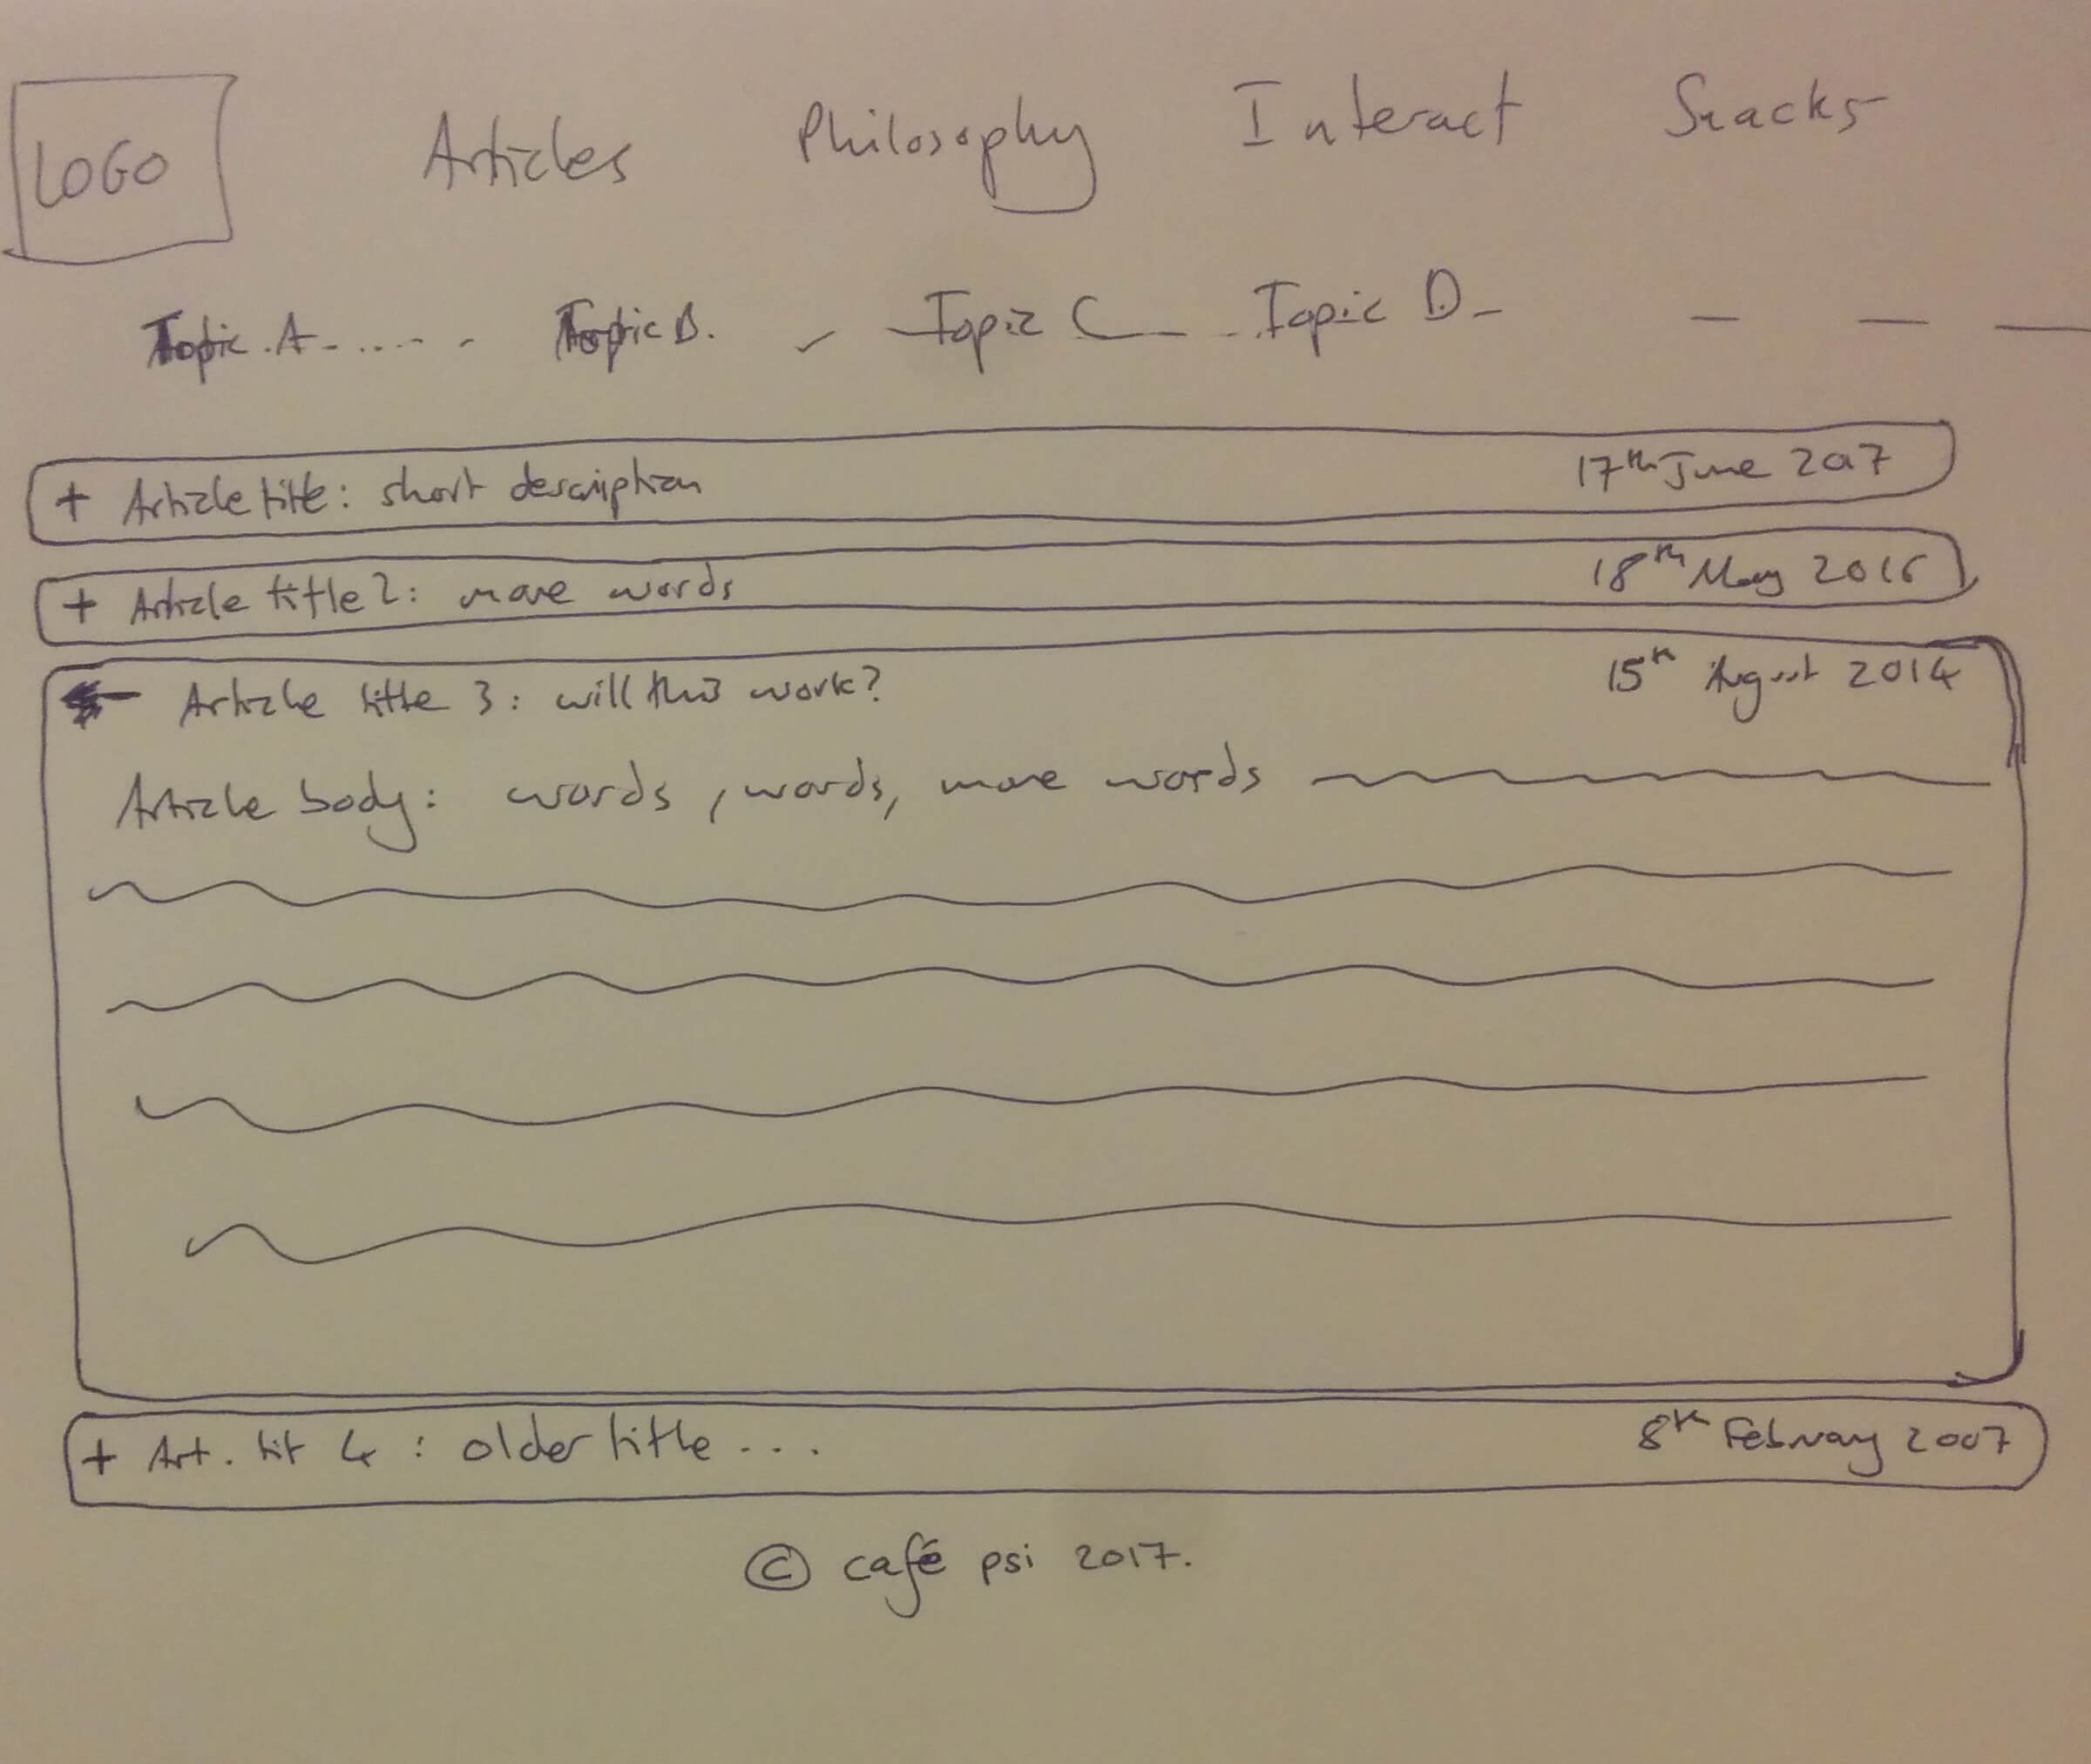 LOGO Articles Philosophy Interact Snacks
Topic A...... Topic B. Topic C Topic D
+ Article title: short description 17th June 2017
+ Article title 2: more words 18th May 2016
Article title 3: will this work? 15th August 2014
Article body: words, words, more words
+ Art. tit 4: older title ... 8th February 2007
© café psi 2017.